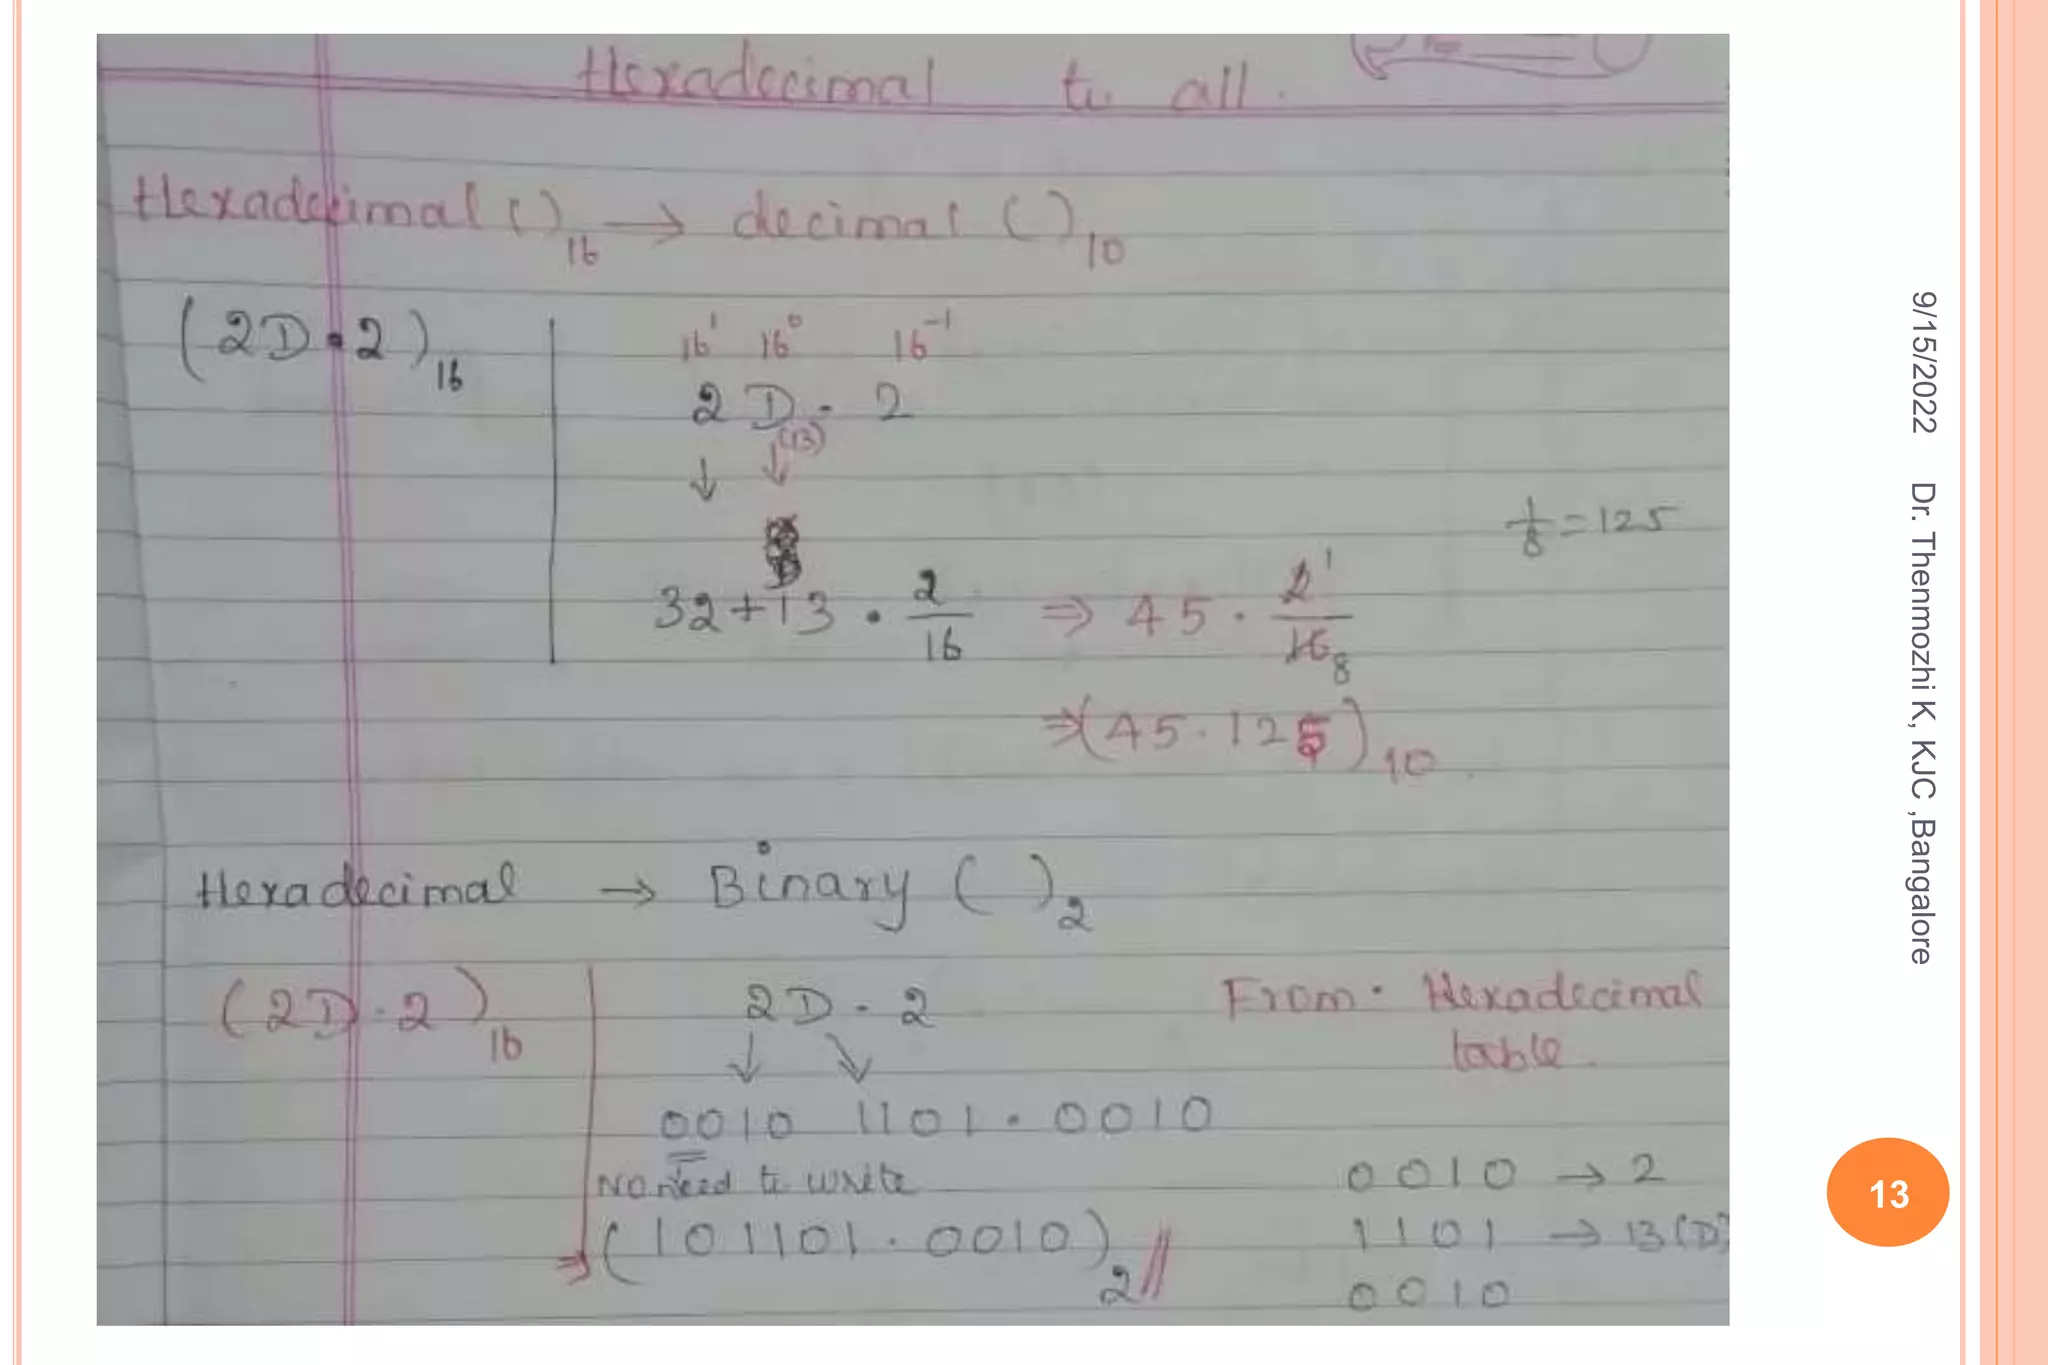 Hexadecimal to all.
Hexadecimal ( )₁₆ → decimal ( )₁₀
(2D.2)₁₆
16¹ 16⁰ 16⁻¹
2 D . 2
(13)
↓ ↓
1/8 = 125
32+13 . 2/16 ⇒ 45 . 2¹/16₈
⇒(45.125)₁₀
Hexadecimal → Binary ( )₂
(2D.2)₁₆
2D . 2
From. Hexadecimal
table.
0010 1101 . 0010
No need to write
0010 → 2
(101101.0010)₂//
1101 → 13(D)
0010
9/15/2022 Dr. Thenmozhi K, KJC ,Bangalore
13